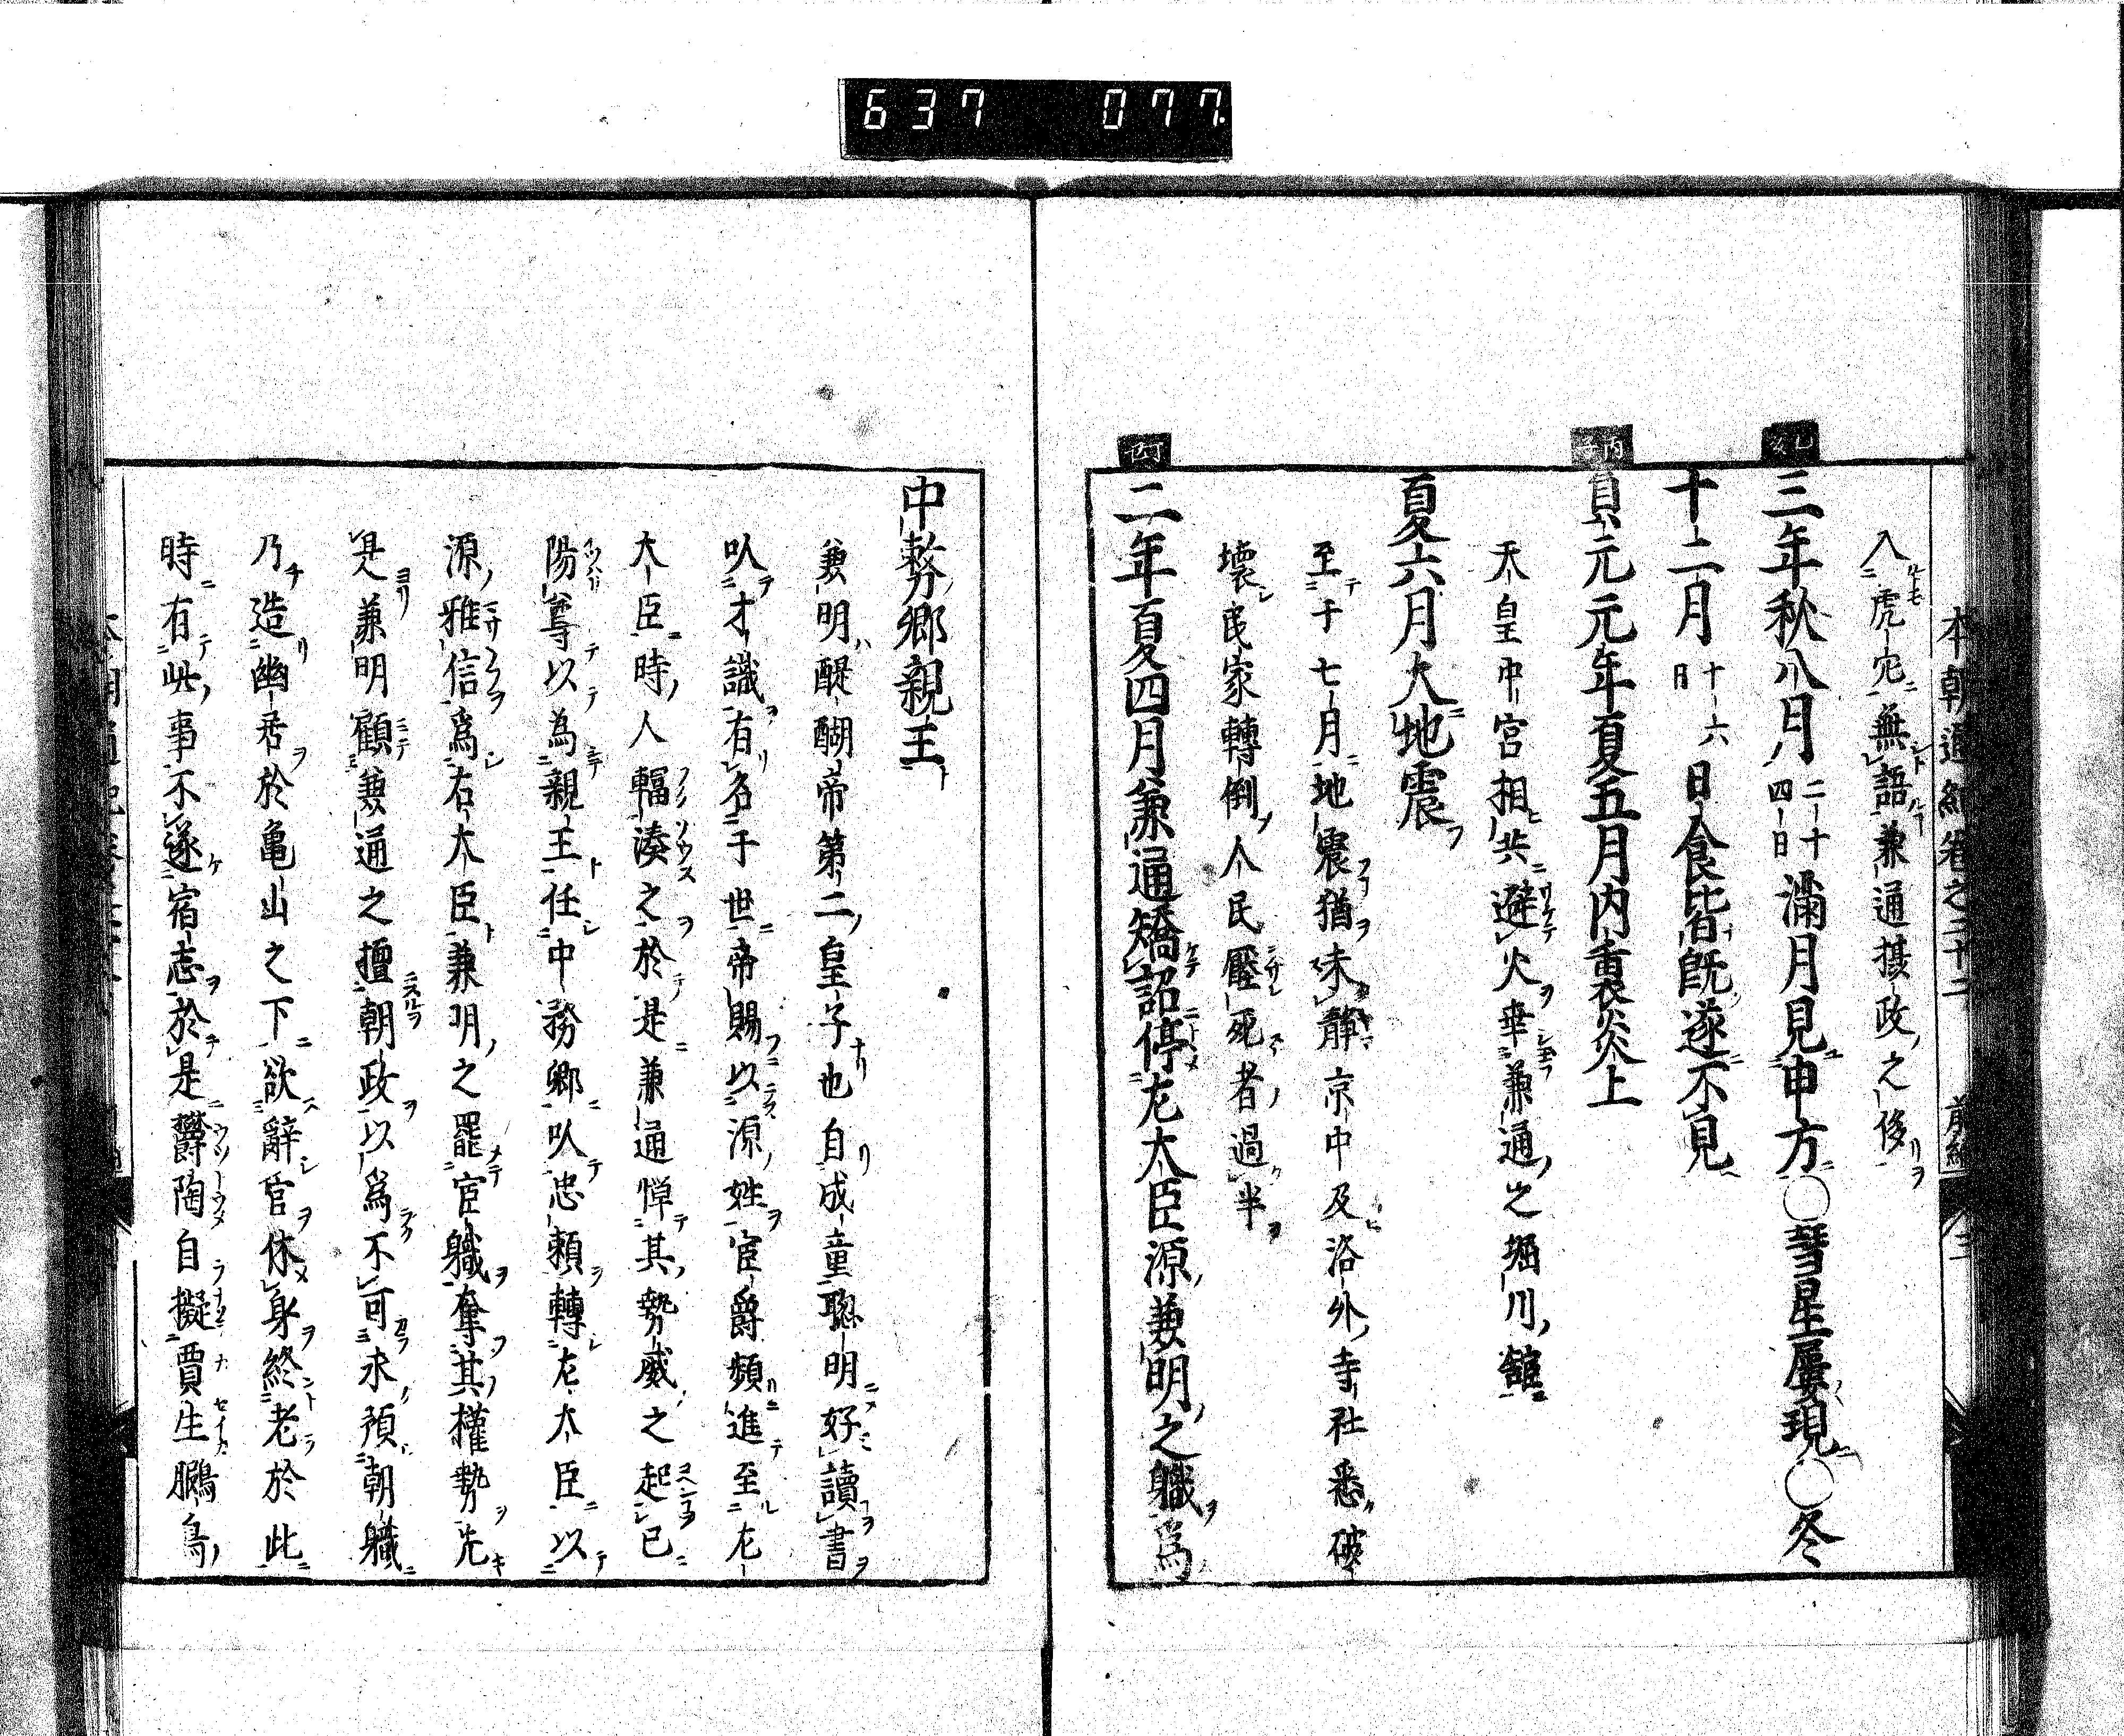 637 077.
本朝通紀卷之二十二 前編 三
入虎穴無語兼通摂政之侈
乙亥
三年秋八月二十四日滿月見申方○彗星屢現○冬
十二月十六日日食皆既遂不見
丙子
貞元元年夏五月内裏炎上
天皇中宮相共避火幸兼通之堀川舘
夏六月大地震
至于七月地震猶未靜京中及洛外寺社悉破
壞民家轉倒人民壓死者過半
丁丑
二年夏四月兼通矯詔停左大臣源兼明之職爲
中務卿親王
兼明醍醐帝第二皇子也自成童聡明好讀書
以才識有名于世帝賜以源姓宦爵頻進至左
大臣時人輻湊之於是兼通憚其勢威之起已
陽尊以為親王任中務卿以忠頼轉左大臣以
源雅信爲右大臣兼明之罷宦職奪其權勢先
是兼明顧兼通之擅朝政以爲不可求預朝職
乃造幽居於亀山之下欲辭官休身終老於此
時有此事不遂宿志於是欝陶自擬賈生鵩鳥